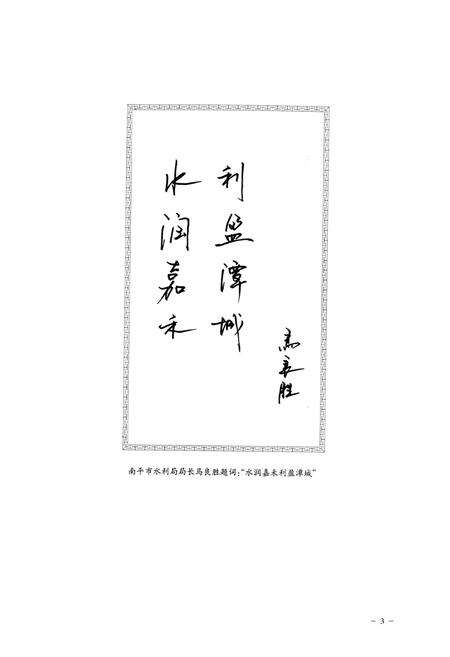 水润嘉禾
利盈潭城
马良胜
南平市水利局局长马良胜题词:“水润嘉禾利盈潭城”
- 3 -